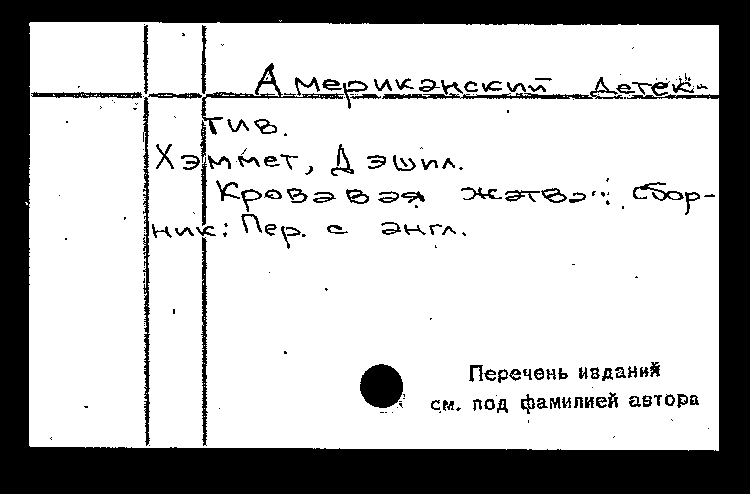 Американский детек-
тив.
Хэммет, Дэшил.
Кровавая жатва: сбор-
ник: Пер. с англ.
Перечень изданий
см. под фамилией автора